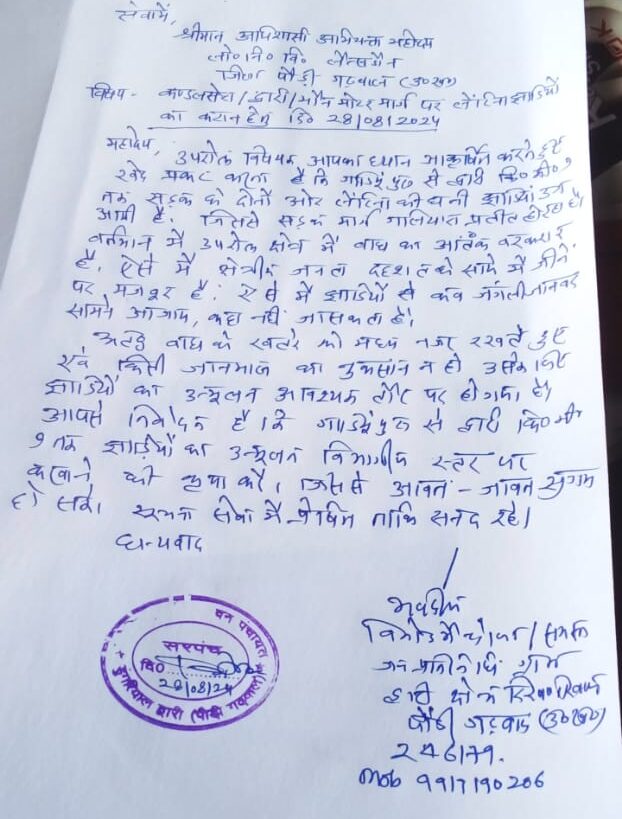 सेवामें,
श्रीमान अधिशासी अभियन्ता महोदय
लो० नि० वि० लैन्सडौन
जिला पौड़ी गढ़वाल (उ०ख०)
विषय - काण्डलसेरा / द्वारी / मोटर मार्ग पर लैंटिना झाडियों
का कटान हेतु दि० 28/08/2024
महोदय,
उपरोक्त विषयक आपका ध्यान आकर्षित करते हुए
खेद प्रकट करना है कि गाडियूंपुल से द्वारी कि० मी० 9
तक सड़क के दोनों ओर लैंटिना की घनी झाडियां उग
आयी है. जिससे सड़क मार्ग गलियारा प्रतीत हो रहा है।
वर्तमान में उपरोक्त क्षेत्र में बाघ का आंतक बरकरार
है. ऐसे में क्षेत्रीय जनता दहशत के साये में जीने
पर मजबूर है. ऐसे में झाडियों से कब जंगली जानवर
सामने आ जाय, कहा नहीं जा सकता है।
अतः बाघ के खतरे को मध्य नजर रखते हुए
एवं किसी जानमाल का नुकसान न हो उसके लिए
झाडियों का उन्मूलन आवश्यक तौर पर हो गया है।
आपसे निवेदन है कि गाडियूंपुल से द्वारी कि० मी
9 तक झाडियों का उन्मूलन विभागीय स्तर पर
करवाने की कृपा करें। जिससे आवत - जावत सुगम
हो सके। सूचना सेवा में प्रेषित ताकि सनद रहे।
धन्यवाद
भवदीय
ग्राम
द्वारी
पौड़ी गढ़वाल (उ०ख०)
246179.
Mob 9917190206
वन पंचायत
सरपंच
दि०
28/08/24
डुंगरियाल द्वारी (पौड़ी गढ़वाल)